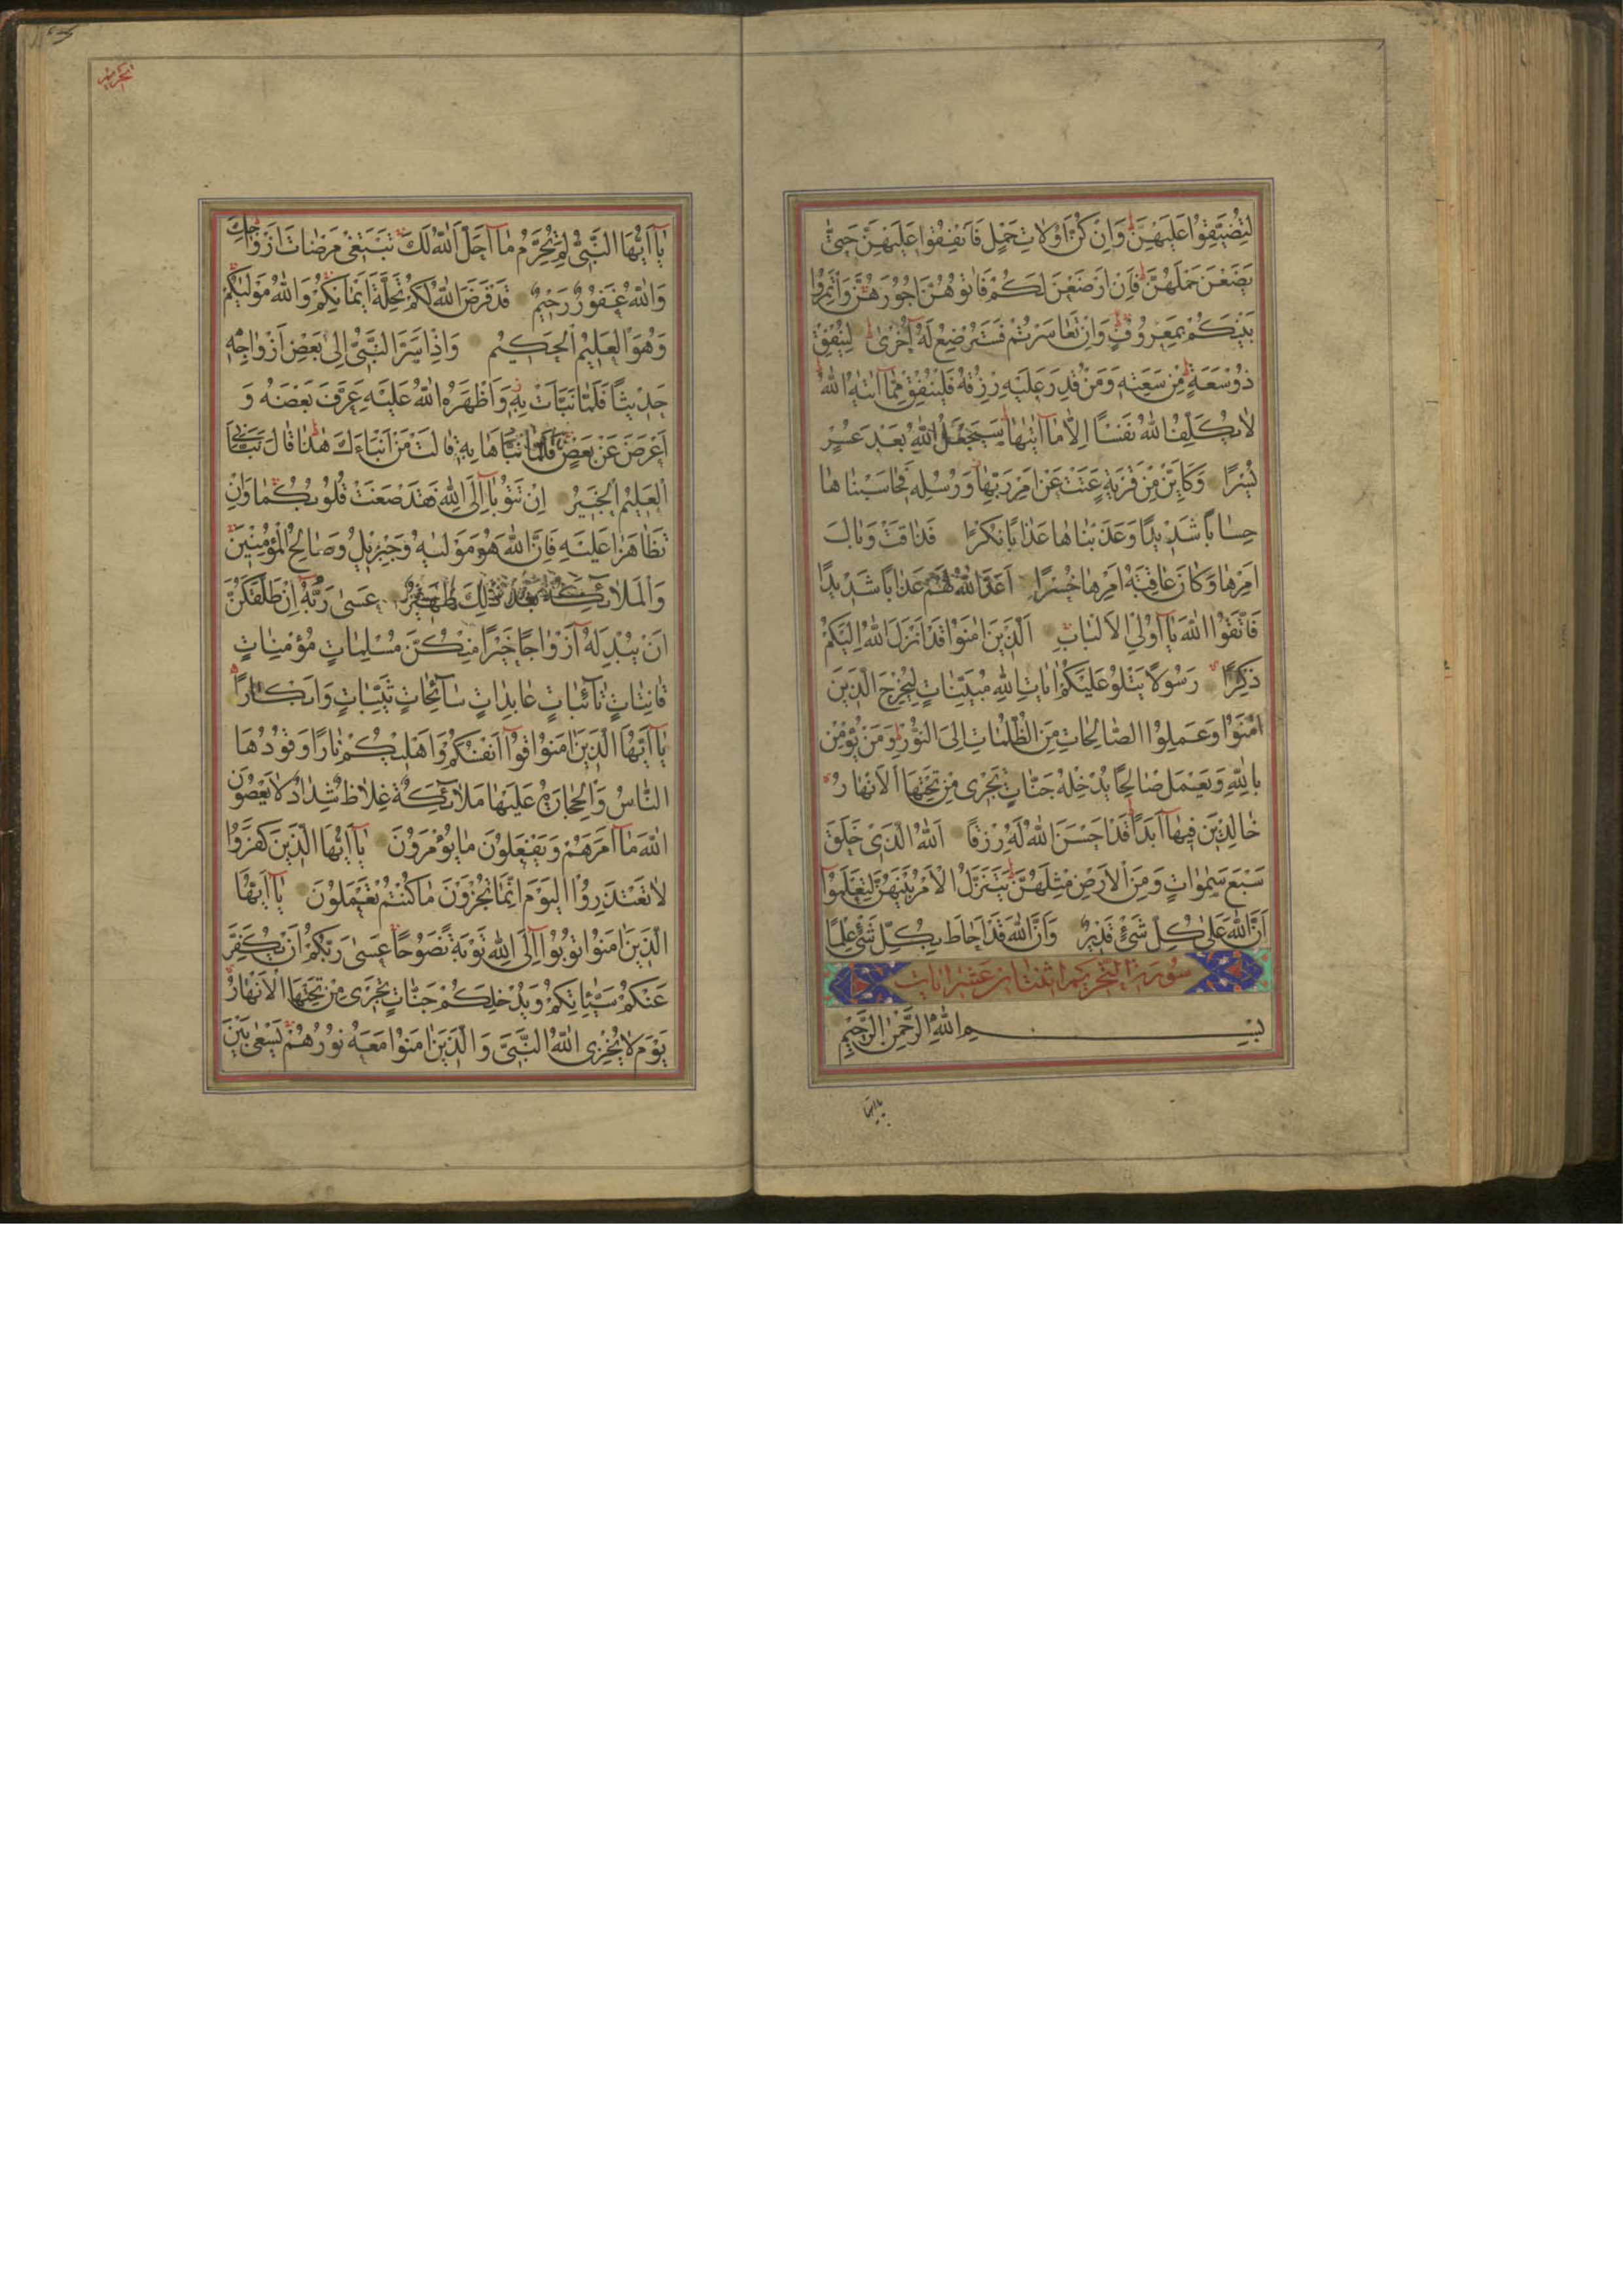 لِتُضَيِّقُوا عَلَيْهِنَّ وَاِنْ كُنَّ اُولَاتِ حَمْلٍ فَاَنْفِقُوا عَلَيْهِنَّ حَتّٰى
يَضَعْنَ حَمْلَهُنَّ فَاِنْ اَرْضَعْنَ لَكُمْ فَاٰتُوهُنَّ اُجُورَهُنَّ وَأْتَمِرُوا
بَيْنَكُمْ بِمَعْرُوفٍ وَاِنْ تَعَاسَرْتُمْ فَسَتُرْضِعُ لَهُ اُخْرٰى لِيُنْفِقْ
ذُوسَعَةٍ مِنْ سَعَتِهِ وَمَنْ قُدِرَ عَلَيْهِ رِزْقُهُ فَلْيُنْفِقْ مِمَّا اٰتٰيهُ اللّٰهُ
لَا يُكَلِّفُ اللّٰهُ نَفْسًا اِلَّا مَا اٰتٰيهَا سَيَجْعَلُ اللّٰهُ بَعْدَ عُسْرٍ
يُسْرًا وَكَاَيِّنْ مِنْ قَرْيَةٍ عَتَتْ عَنْ اَمْرِ رَبِّهَا وَرُسُلِهِ فَحَاسَبْنَاهَا
حِسَابًا شَدِيدًا وَعَذَّبْنَاهَا عَذَابًا نُكْرًا فَذَاقَتْ وَبَالَ
اَمْرِهَا وَكَانَ عَاقِبَةُ اَمْرِهَا خُسْرًا اَعَدَّ اللّٰهُ لَهُمْ عَذَابًا شَدِيدًا
فَاتَّقُوا اللّٰهَ يَا اُولِي الْاَلْبَابِ اَلَّذِينَ اٰمَنُوا قَدْ اَنْزَلَ اللّٰهُ اِلَيْكُمْ
ذِكْرًا رَسُولًا يَتْلُو عَلَيْكُمْ اٰيَاتِ اللّٰهِ مُبَيِّنَاتٍ لِيُخْرِجَ الَّذِينَ
اٰمَنُوا وَعَمِلُوا الصَّالِحَاتِ مِنَ الظُّلُمَاتِ اِلَى النُّورِ وَمَنْ يُؤْمِنْ
بِاللّٰهِ وَيَعْمَلْ صَالِحًا يُدْخِلْهُ جَنَّاتٍ تَجْرِى مِنْ تَحْتِهَا الْاَنْهَارُ
خَالِدِينَ فِيهَا اَبَدًا قَدْ اَحْسَنَ اللّٰهُ لَهُ رِزْقًا اَللّٰهُ الَّذِى خَلَقَ
سَبْعَ سَمٰوَاتٍ وَمِنَ الْاَرْضِ مِثْلَهُنَّ يَتَنَزَّلُ الْاَمْرُ بَيْنَهُنَّ لِتَعْلَمُوا
اَنَّ اللّٰهَ عَلٰى كُلِّ شَىْءٍ قَدِيرٌ وَاَنَّ اللّٰهَ قَدْ اَحَاطَ بِكُلِّ شَىْءٍ عِلْمًا
سُورَة التحريم اثنتان عشر ايات
بِسْمِ اللّٰهِ الرَّحْمٰنِ الرَّحِيمِ
يا ايها
التحريم
يَا اَيُّهَا النَّبِىُّ لِمَ تُحَرِّمُ مَا اَحَلَّ اللّٰهُ لَكَ تَبْتَغِى مَرْضَاتَ اَزْوَاجِكَ
وَاللّٰهُ غَفُورٌ رَحِيمٌ قَدْ فَرَضَ اللّٰهُ لَكُمْ تَحِلَّةَ اَيْمَانِكُمْ وَاللّٰهُ مَوْلٰيكُمْ
وَهُوَ الْعَلِيمُ الْحَكِيمُ وَاِذْ اَسَرَّ النَّبِىُّ اِلٰى بَعْضِ اَزْوَاجِهِ
حَدِيثًا فَلَمَّا نَبَّاَتْ بِهِ وَاَظْهَرَهُ اللّٰهُ عَلَيْهِ عَرَّفَ بَعْضَهُ وَ
اَعْرَضَ عَنْ بَعْضٍ فَلَمَّا نَبَّاَهَا بِهِ قَالَتْ مَنْ اَنْبَاَكَ هٰذَا قَالَ نَبَّاَنِىَ
الْعَلِيمُ الْخَبِيرُ اِنْ تَتُوبَا اِلَى اللّٰهِ فَقَدْ صَغَتْ قُلُوبُكُمَا وَاِنْ
تَظَاهَرَا عَلَيْهِ فَاِنَّ اللّٰهَ هُوَ مَوْلٰيهُ وَجِبْرِيلُ وَصَالِحُ الْمُؤْمِنِينَ
وَالْمَلَائِكَةُ بَعْدَ ذٰلِكَ ظَهِيرٌ عَسٰى رَبُّهُ اِنْ طَلَّقَكُنَّ
اَنْ يُبْدِلَهُ اَزْوَاجًا خَيْرًا مِنْكُنَّ مُسْلِمَاتٍ مُؤْمِنَاتٍ
قَانِتَاتٍ تَائِبَاتٍ عَابِدَاتٍ سَائِحَاتٍ ثَيِّبَاتٍ وَاَبْكَارًا
يَا اَيُّهَا الَّذِينَ اٰمَنُوا قُوا اَنْفُسَكُمْ وَاَهْلِيكُمْ نَارًا وَقُودُهَا
النَّاسُ وَالْحِجَارَةُ عَلَيْهَا مَلَائِكَةٌ غِلَاظٌ شِدَادٌ لَا يَعْصُونَ
اللّٰهَ مَا اَمَرَهُمْ وَيَفْعَلُونَ مَا يُؤْمَرُونَ يَا اَيُّهَا الَّذِينَ كَفَرُوا
لَا تَعْتَذِرُوا الْيَوْمَ اِنَّمَا تُجْزَوْنَ مَا كُنْتُمْ تَعْمَلُونَ يَا اَيُّهَا
الَّذِينَ اٰمَنُوا تُوبُوا اِلَى اللّٰهِ تَوْبَةً نَصُوحًا عَسٰى رَبُّكُمْ اَنْ يُكَفِّرَ
عَنْكُمْ سَيِّئَاتِكُمْ وَيُدْخِلَكُمْ جَنَّاتٍ تَجْرِى مِنْ تَحْتِهَا الْاَنْهَارُ
يَوْمَ لَا يُخْزِى اللّٰهُ النَّبِىَّ وَالَّذِينَ اٰمَنُوا مَعَهُ نُورُهُمْ يَسْعٰى بَيْنَ